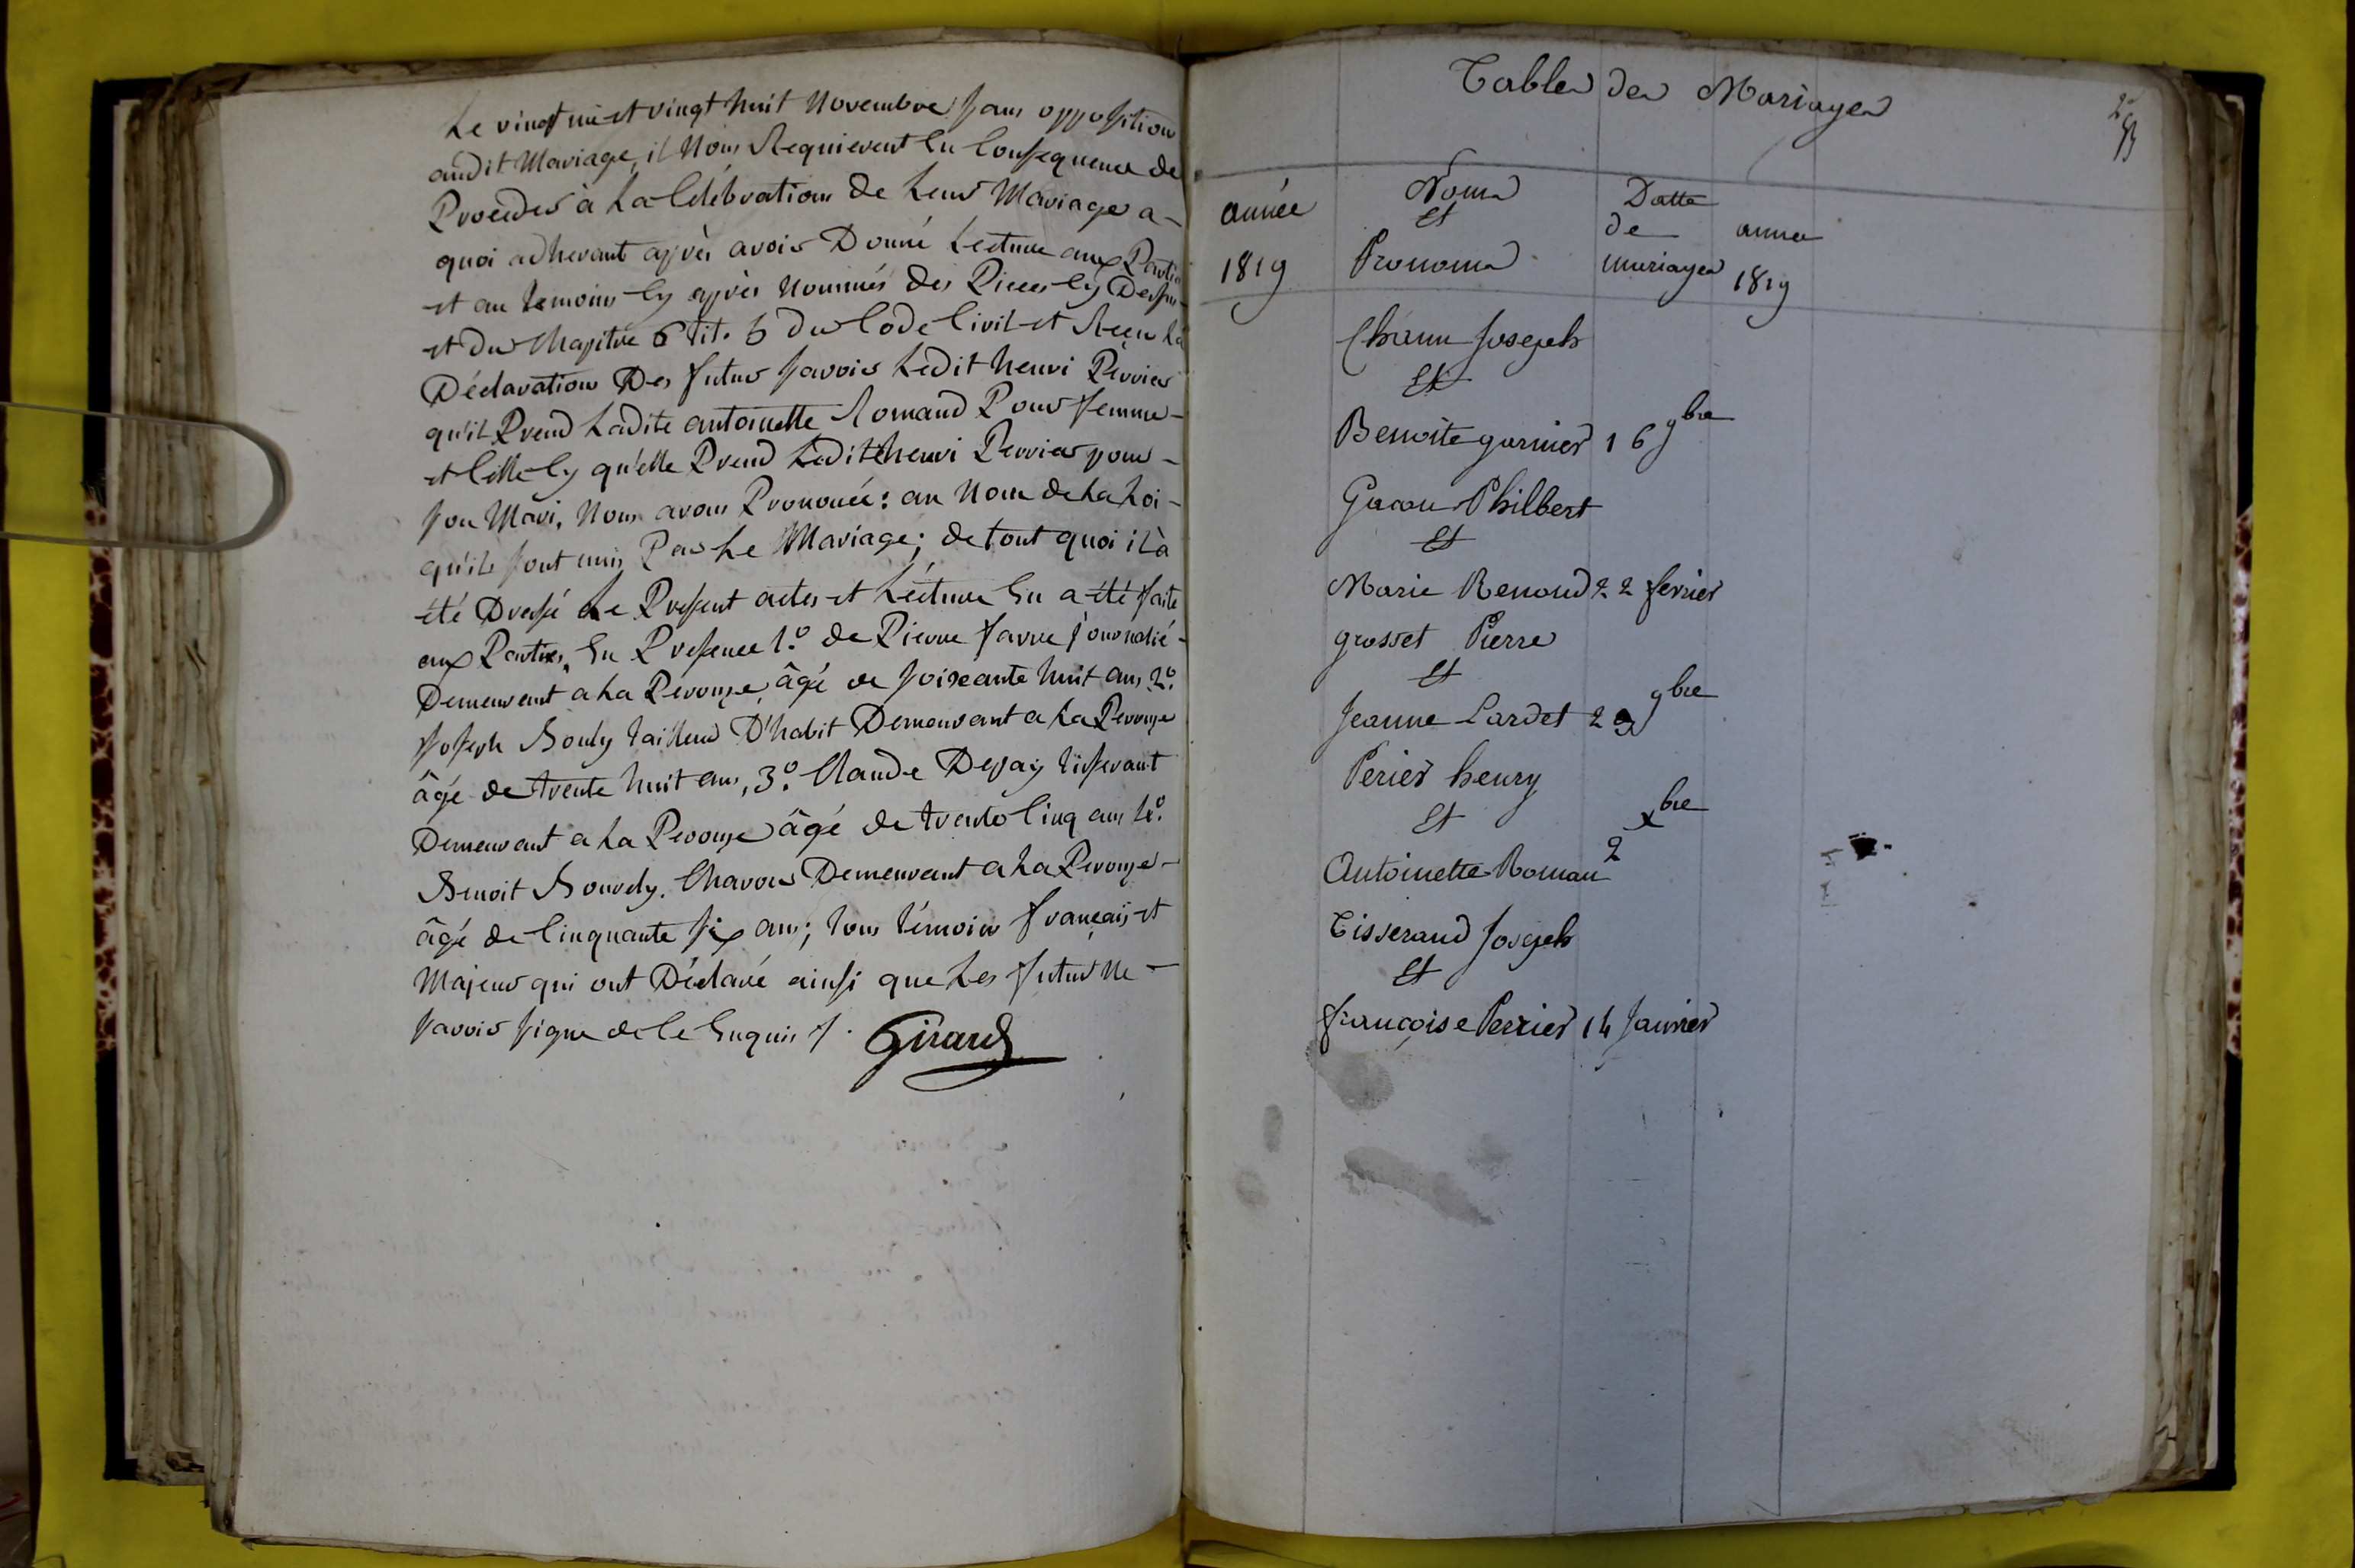 Le vingt un et vingt huit Novembre sans opposition
audit Mariage, il Nous Requierent En Consequence de
Proceder à La Célébration de Leur Mariage a-
quoi adherant après avoir Donné Lecture aux Parties
et au temoins Cy après Nommés des Pieces Cy Dessus
et du Chapitre 6 tit. 5 du Code Civil et Reçu La
Déclaration Des futur savoir Ledit henri Perrier
qu'il Prend Ladite antoinette Romand Pour femme-
et Celle Cy qu'elle Prend Ledit henri Perrier pour-
son Mari, Nous avons Prononcé: au Nom de La Loi-
qu'ils sont unis Par Le Mariage; de tout quoi il à
été Dressé Le Present actes et Lecture En a été faite
aux Parties, En Presence 1.º de Pierre favre journalié-
Demeurant a La Perouze âgé de soixante huit ans 2.º
Joseph Bouly tailleur D'habit Demeurant a La Perouze
âgé de trente huit ans, 3.º Claude Depay tisserant
Demeurant a La Perouze âgé de trente Cinq ans 4.º
Benoit Bourdy. Charon Demeurant a La Perouze-
âgé de Cinquante six ans; tous témoin français et
Majeur qui ont Déclaré ainsi que Les futur Ne-
savoir signe de Ce Enquis /. Girard
Table des Mariages
année
1819
Noms
et
Pronoms
Datte
de
mariages
année
1819
Chanu Joseph
Et
Benoite garnier 16 9bre
Gacon Philbert
Et
Marie Renoud 22 fevrier
grosset Pierre
Et
Jeanne Lardet 29 9bre
Perier henry
Et
Antoinette Roman 2 xbre
Tisserand Joseph
Et
françoise Perrier 14 Janvier